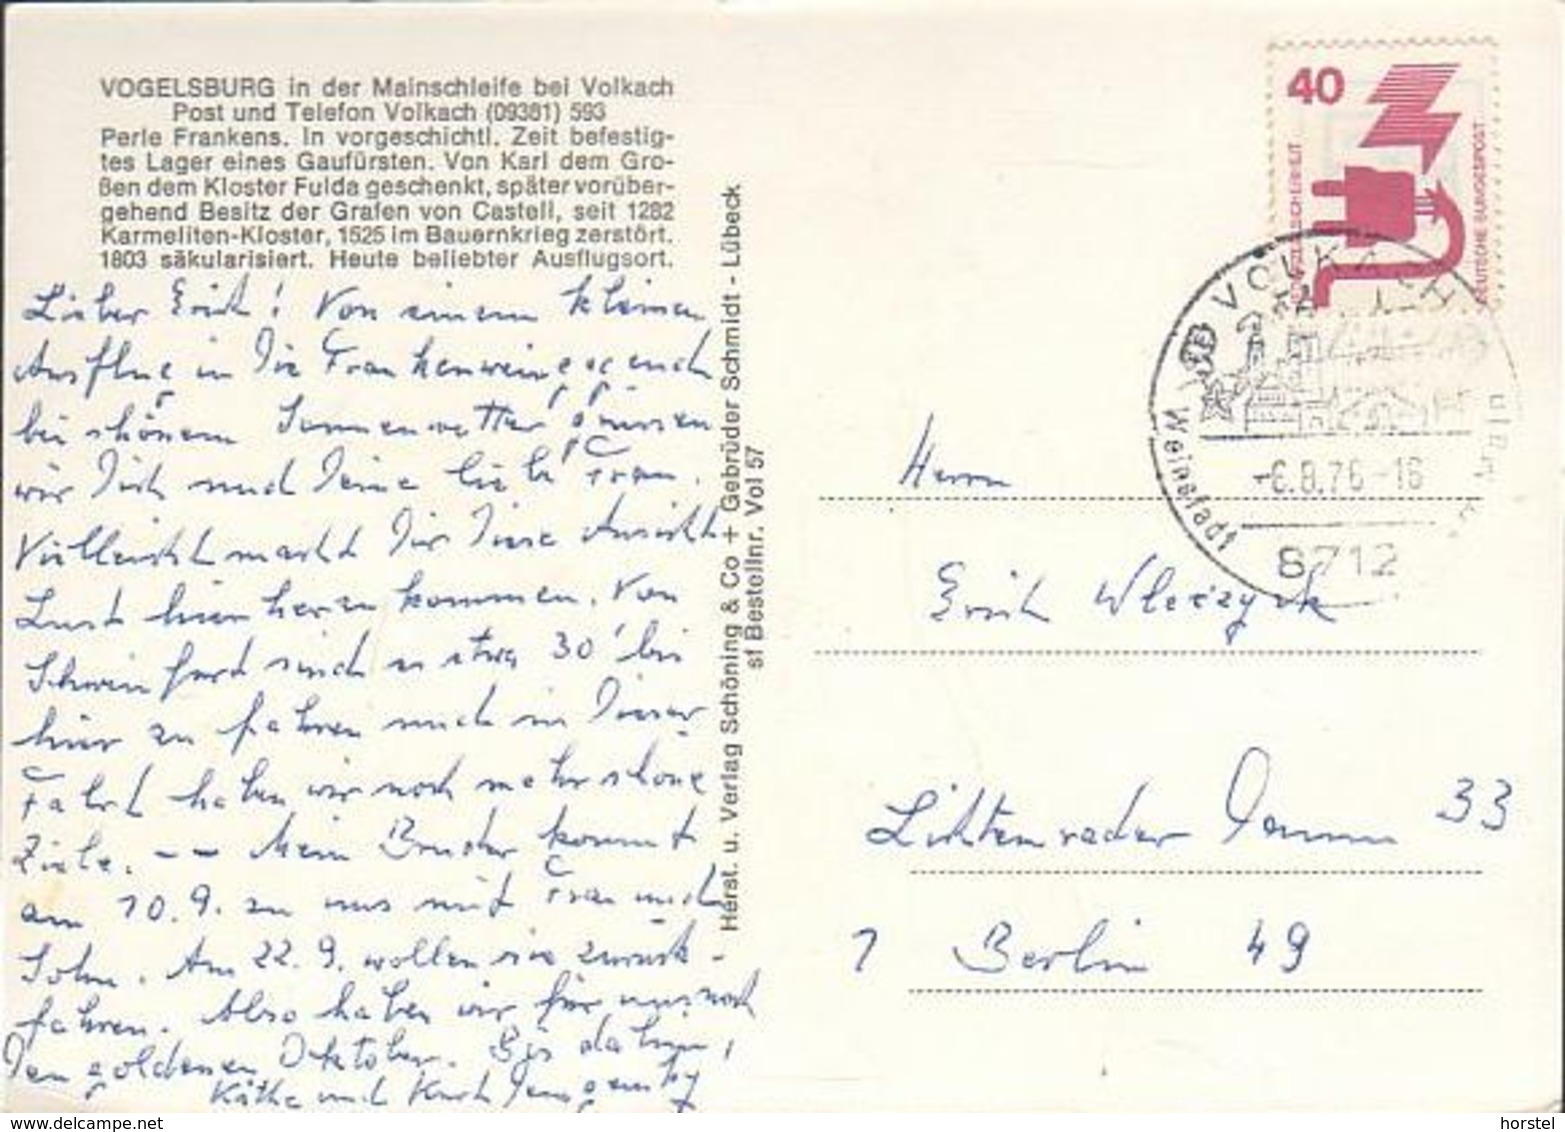 VOGELSBURG in der Mainschleife bei Volkach
Post und Telefon Volkach (09381) 593
Perle Frankens. In vorgeschichtl. Zeit befestig-
tes Lager eines Gaufürsten. Von Karl dem Gro-
ßen dem Kloster Fulda geschenkt, später vorüber-
gehend Besitz der Grafen von Castell, seit 1282
Karmeliten-Kloster, 1525 im Bauernkrieg zerstört.
1803 säkularisiert. Heute beliebter Ausflugsort.
Lieber Erich! Von einem kleinen
Ausflug in die Frankenweingegend
bei schönem Sonnenwetter grüssen
wir Dich und Deine liebe Frau.
Vielleicht macht Dir diese Ansicht
Lust hierher zu kommen. Von
Schweinfurt sind es etwa 30' bis
hier zu fahren und in dieser
Fahrt haben wir noch mehr schöne
Ziele. -- Mein Bruder kommt
am 10.9. zu uns mit Frau und
Sohn. Am 22.9. wollen sie zurück-
fahren. Also haben wir für uns noch
den goldenen Oktober. Bis dahin,
Käthe und Kurt
Herst. u. Verlag Schöning & Co + Gebrüder Schmidt - Lübeck
sf Bestellnr. Vol 57
40
DEUTSCHE BUNDESPOST
VOLKACH
Weinstadt
-6.8.76-16
8712
Herrn
Erich
Lichtenrader Damm 33
1 Berlin 49
horstel